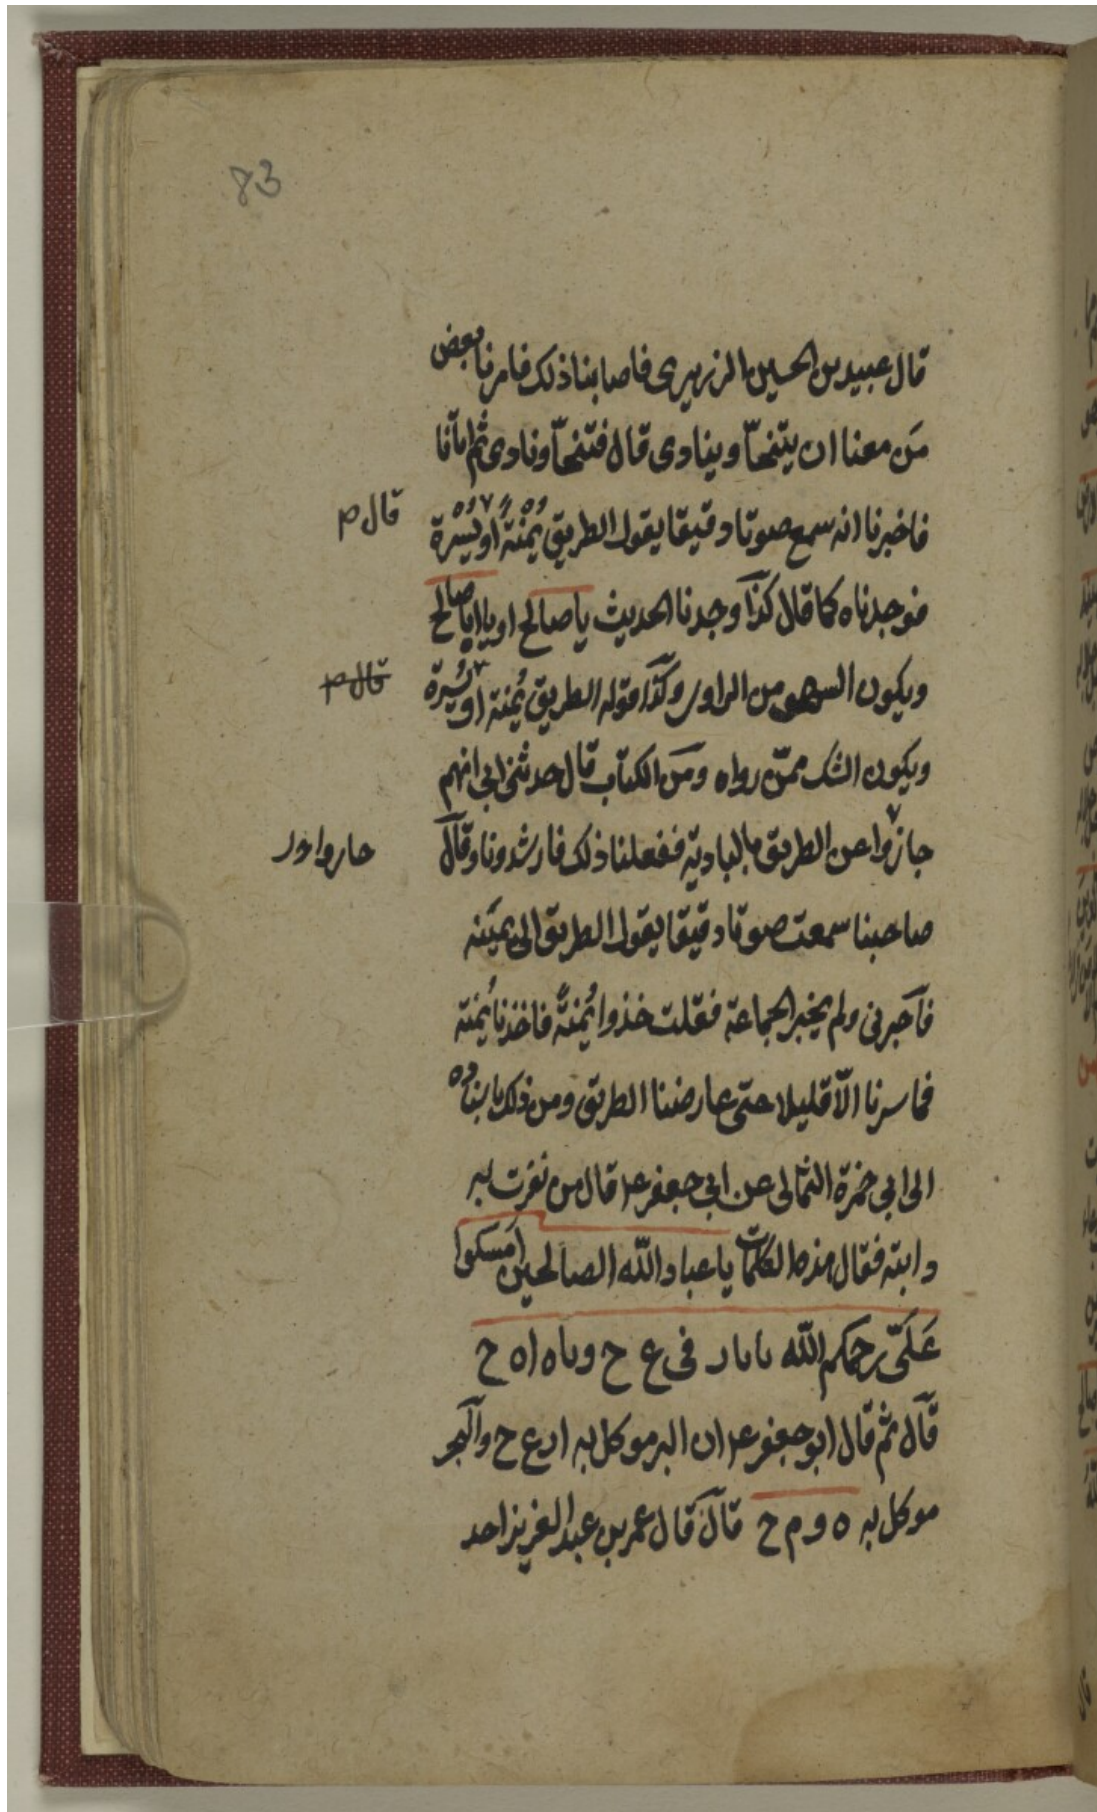 83
قال عبيد بن الحسين الزرندی فاصابنا ذلك فامرنا بعض
مَن معنا ان يتنحّا وينادى قال فتنحّا ونادى ثم اتانا
فاخبرنا انه سمع صوتا دقيقا يقول الطريق يُمْنَةً او يُسْرة
قال م
فوجدناه كما قال كذا وجدنا الحديث يا صالح او يا ابا صالح
ويكون السهو من الراوى وكذا قوله الطريق يُمنة او يُسرة
قال م
ويكون الشك ممّن رواه ومن الكتاب قال حدثنى ابى انهم
جازوا عن الطريق بالبادية ففعلنا ذلك فارشدونا وقال
حاروا
صاحبنا سمعت صوتا دقيقا يقول الطريق الى يمينه
فاخبرنى ولم يخبر الجماعة فقلت خذوا يُمنةً فاخذنا يُمنة
فما سرنا الّا قليلا حتى عارضنا الطريق ومن ذلك باسناده
الى ابى حمزة الثمالى عن ابى جعفر ع قال من نفرت له
دابته فقال هذه الكلمات يا عباد الله الصالحين امسكوا
عَلَىّ رحمكم الله فى ع ح
قال ثم قال ابو جعفر ع ان البر موكل به ح والبحر
موكل به ه و م ح قال قال عمر بن عبد العزيز احد